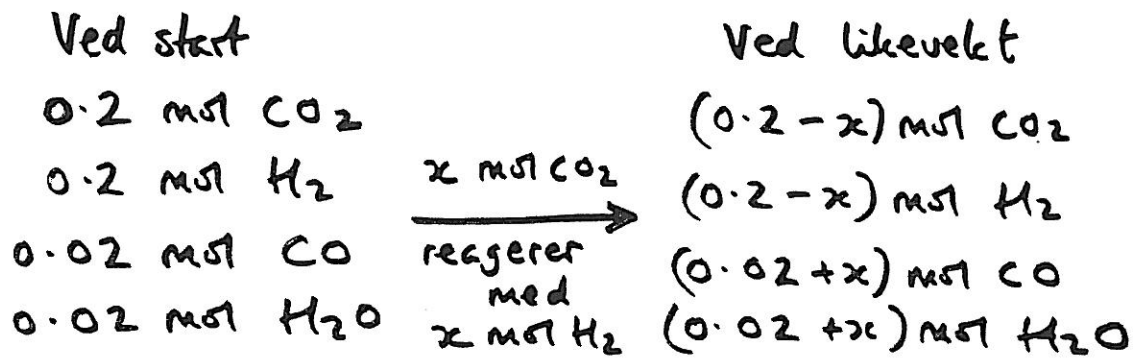 Ved start
0.2 mol CO2
0.2 mol H2
0.02 mol CO
0.02 mol H2O
x mol CO2
reagerer
med
x mol H2
Ved likevekt
(0.2 - x) mol CO2
(0.2 - x) mol H2
(0.02 + x) mol CO
(0.02 + x) mol H2O